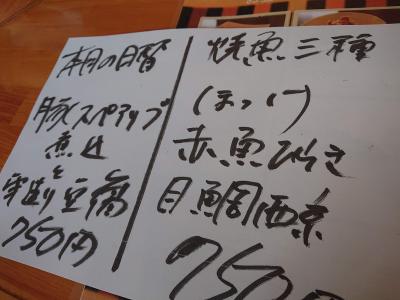 本日の日替
豚スペアリブ
煮込
と
手造り豆腐
750円
焼魚三種
ほっけ
赤魚ひらき
目鯛西京
750円